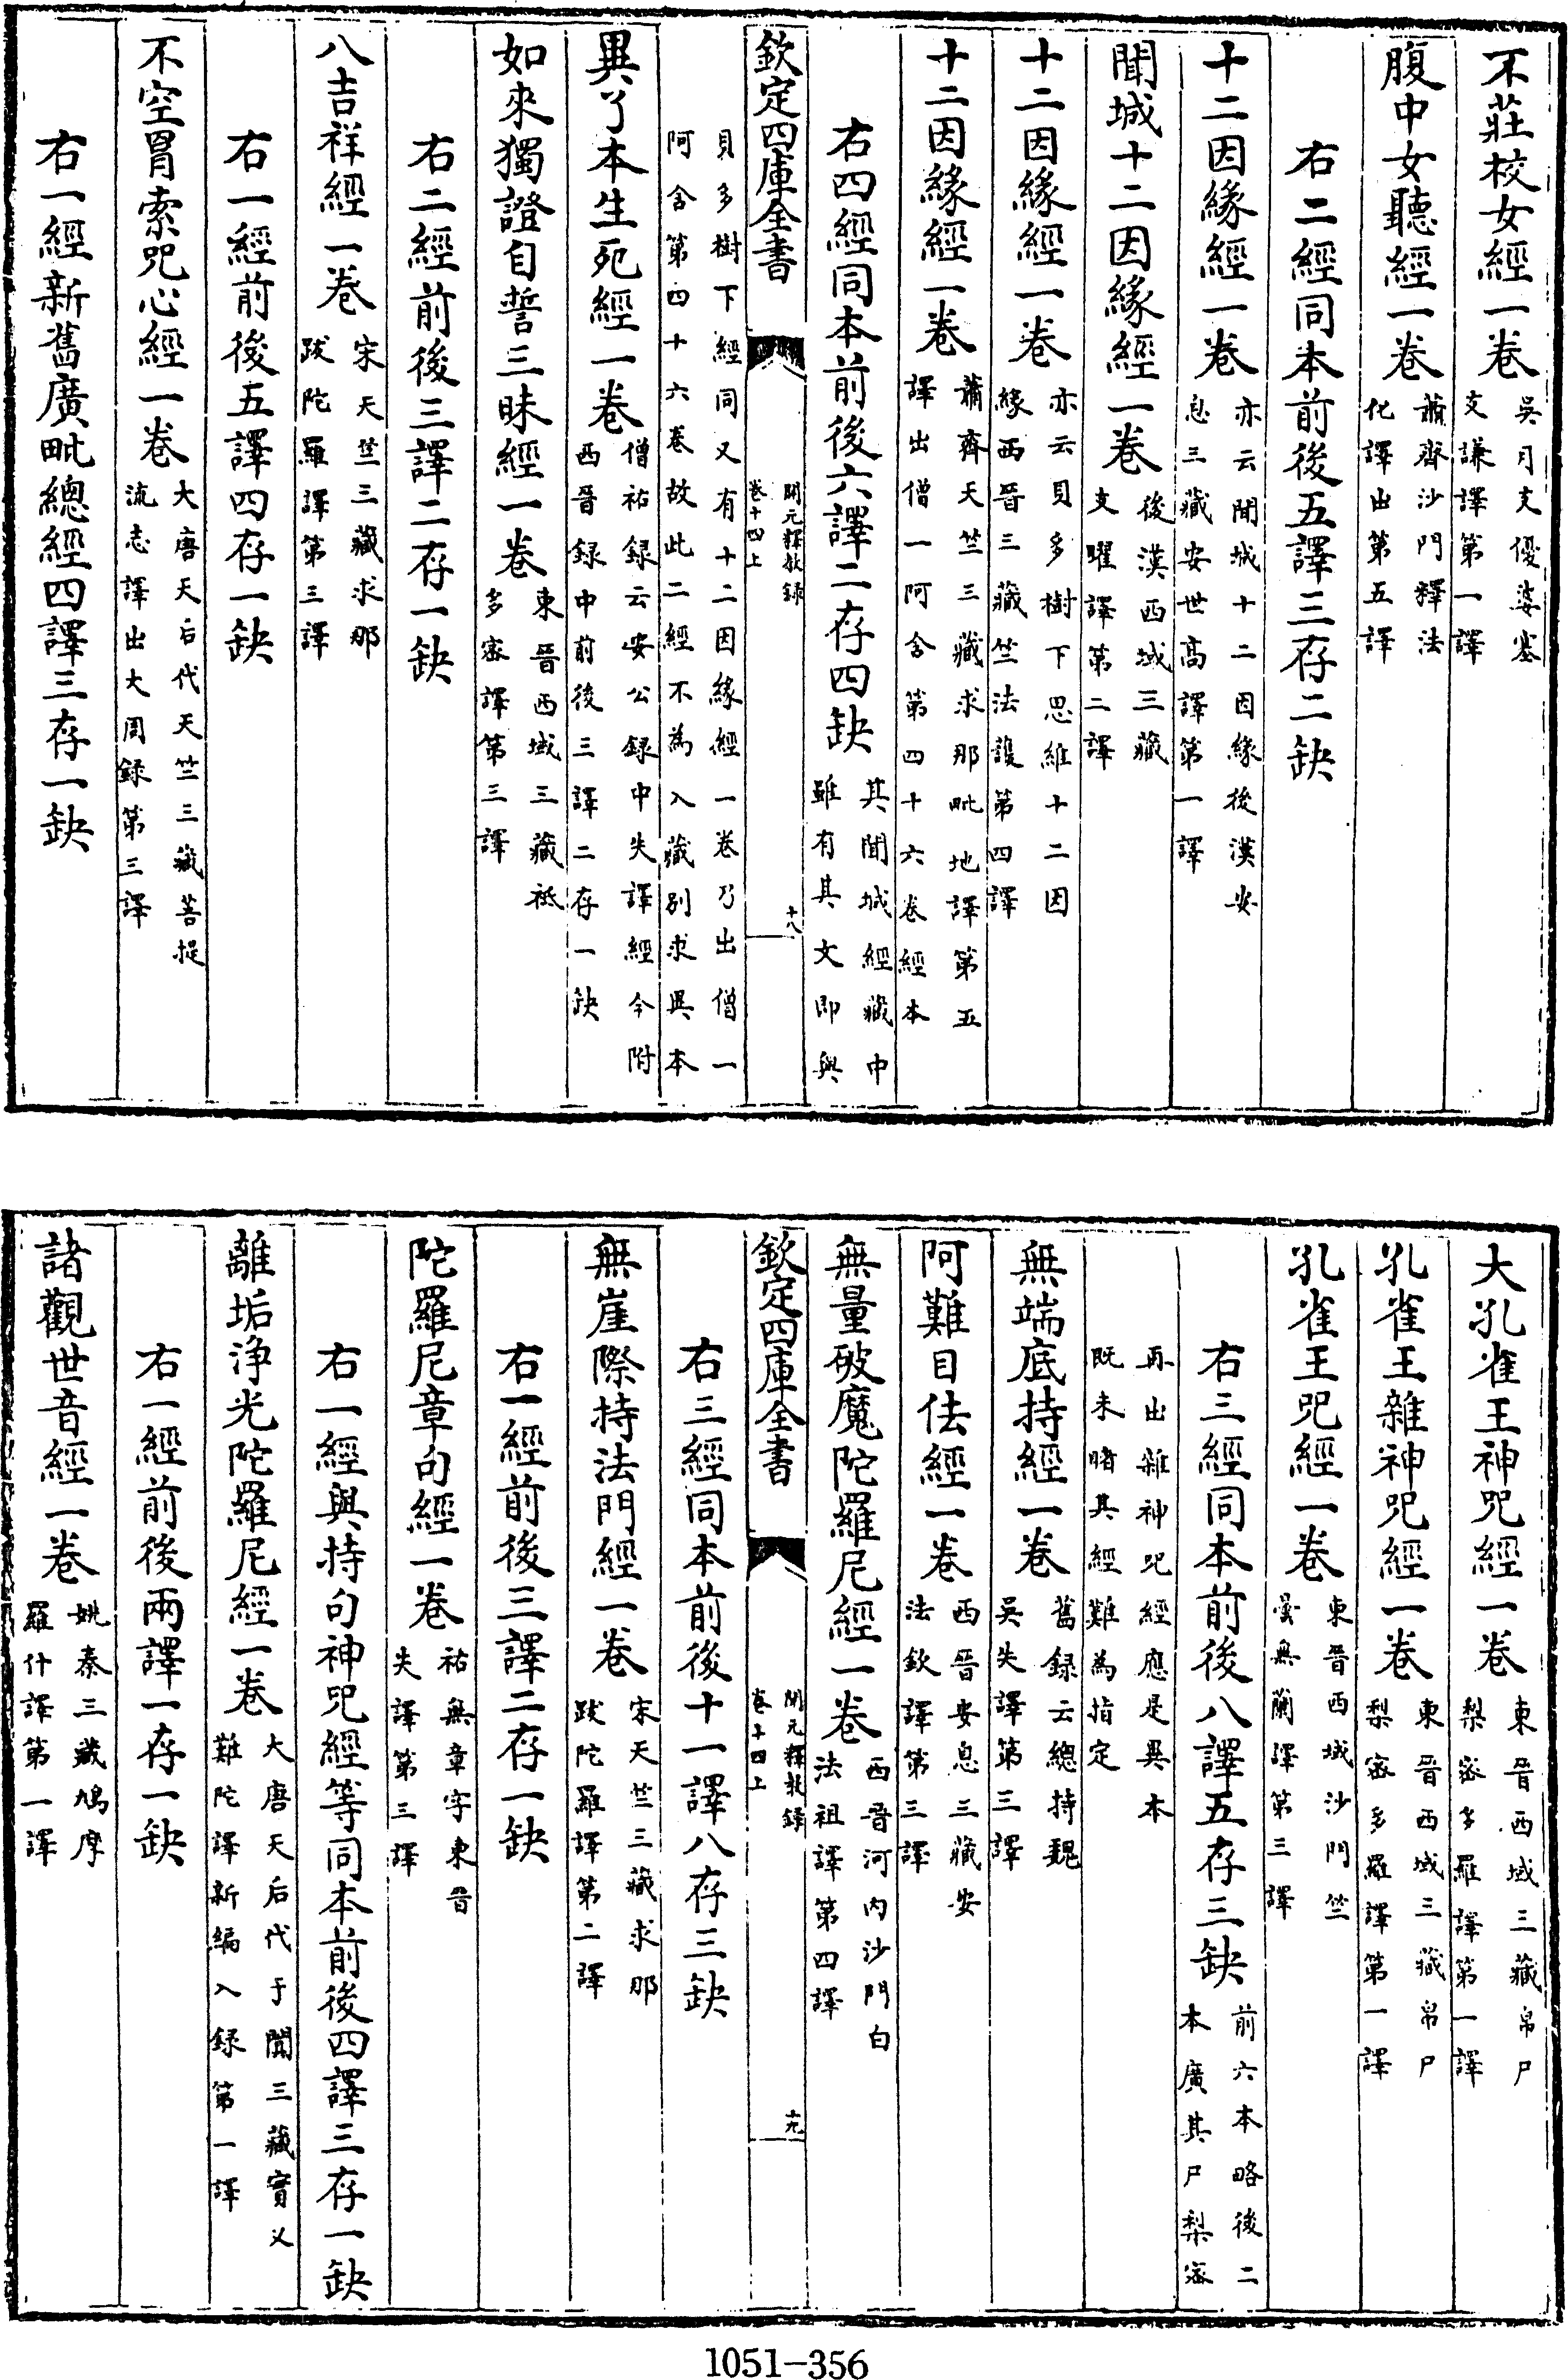 不莊校女經一卷吳月支優婆塞支謙譯第一譯
腹中女聽經一卷蕭齊沙門釋法化譯出第五譯
右二經同本前後五譯三存二缺
十二因緣經一卷亦云聞城十二因緣後漢安息三藏安世高譯第一譯
聞城十二因緣經一卷後漢西域三藏支曜譯第二譯
十二因緣經一卷亦云貝多樹下思維十二因緣西晉三藏竺法護第四譯
十二因緣經一卷蕭齊天竺三藏求那毗地譯第五譯出僧一阿含第四十六卷經本
右四經同本前後六譯二存四缺其聞城經藏中雖有其文即與
欽定四庫全書
開元釋教録
卷十四上
十八
貝多樹下經同又有十二因緣經一卷乃出僧一阿含第四十六卷故此二經不為入藏別求異本
異了本生死經一卷僧祐録云安公録中失譯經今附西晉録中前後三譯二存一缺
如來獨證自誓三昧經一卷東晉西域三藏祗多宻譯第三譯
右二經前後三譯二存一缺
八吉祥經一卷宋天竺三藏求那跋陀羅譯第三譯
右一經前後五譯四存一缺
不空罥索咒心經一卷大唐天后代天竺三藏菩提流志譯出大周録第三譯
右一經新舊廣毗總經四譯三存一缺
大孔雀王神咒經一卷東晉西域三藏帛尸梨宻多羅譯第一譯
孔雀王雜神咒經一卷東晉西域三藏帛尸梨宻多羅譯第一譯
孔雀王咒經一卷東晉西域沙門竺曇無蘭譯第三譯
右三經同本前後八譯五存三缺前六本略後二本廣其尸梨宻
再出雜神咒經應是異本既未睹其經難為指定
無端底持經一卷舊録云總持魏吳失譯第三譯
阿難目佉經一卷西晉安息三藏安法欽譯第三譯
無量破魔陀羅尼經一卷西晉河内沙門白法祖譯第四譯
欽定四庫全書
開元釋教録
卷十四上
十九
右三經同本前後十一譯八存三缺
無崖際持法門經一卷宋天竺三藏求那跋陀羅譯第二譯
右一經前後三譯二存一缺
陀羅尼章句經一卷祐無章字東晉失譯第三譯
右一經與持句神咒經等同本前後四譯三存一缺
離垢浄光陀羅尼經一卷大唐天后代于闐三藏實乂難陀譯新編入録第一譯
右一經前後兩譯一存一缺
諸觀世音經一卷姚秦三藏鳩摩羅什譯第一譯
1051-356